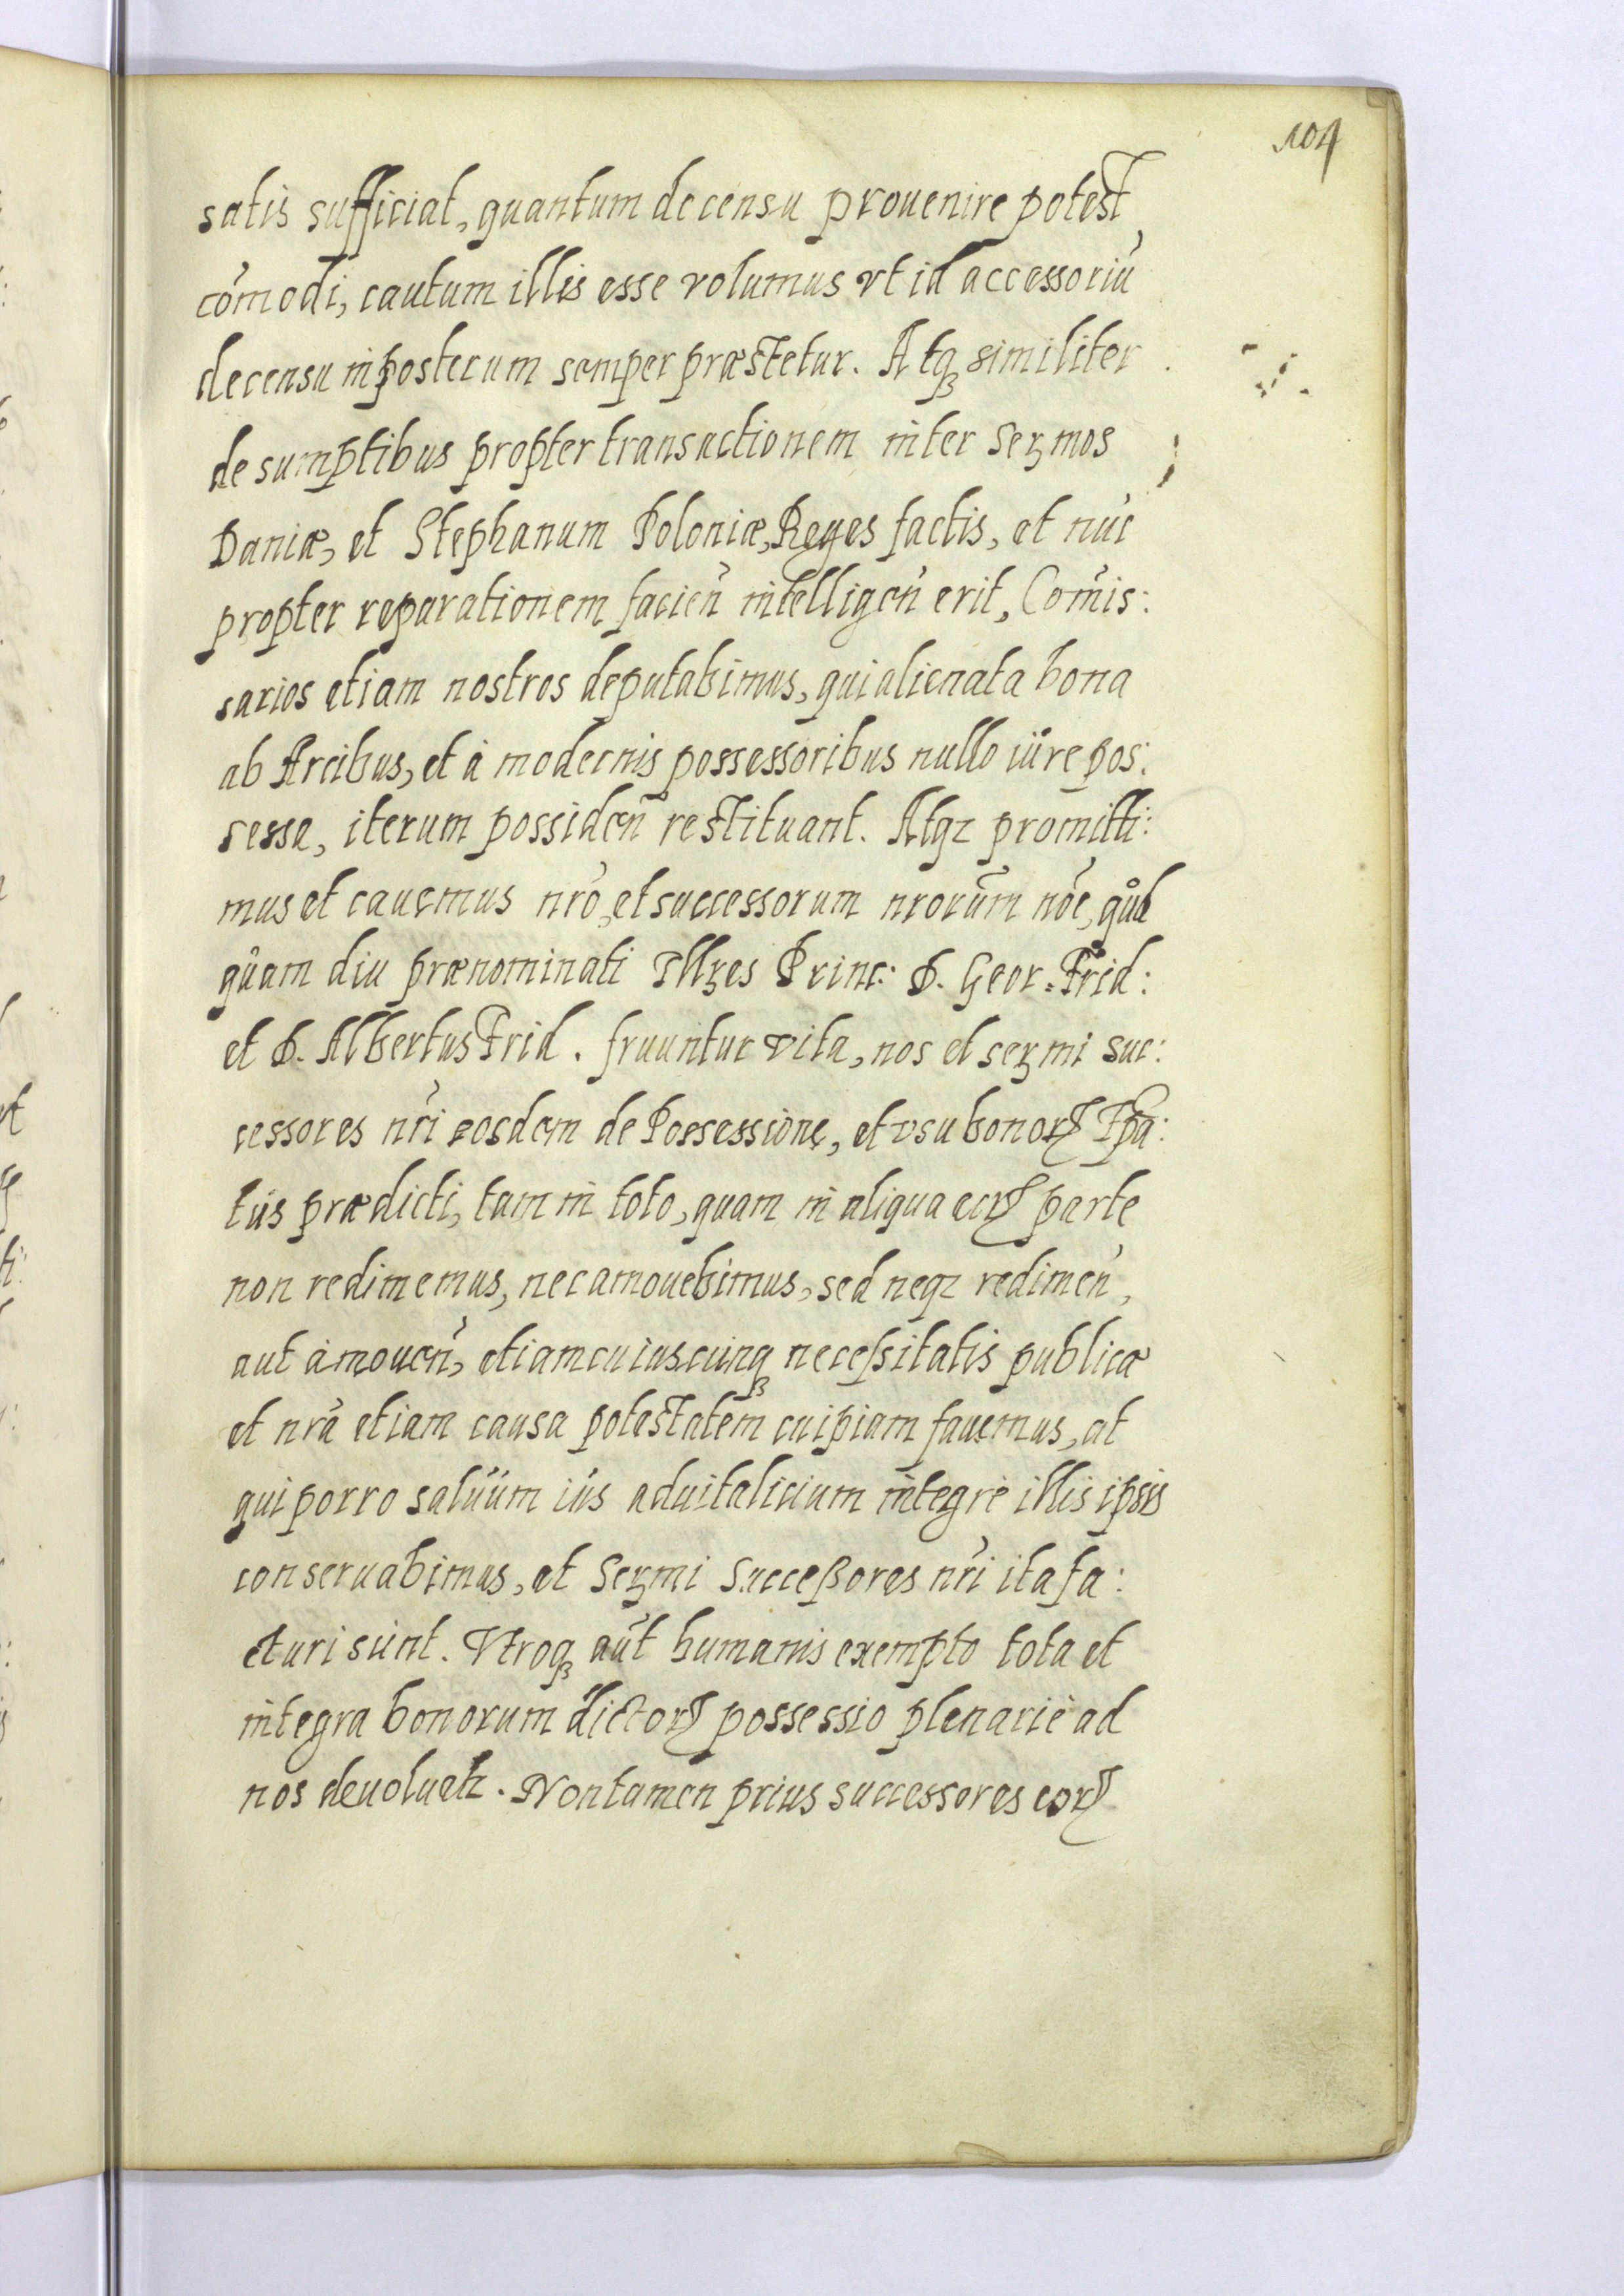 104
satis sufficiat, quantum de censu prouenire potest
cōmodi, cautum illis esse volumus vt id accessoriū
de censu inposterum semper præstetur. Atqȝ similiter
de sumptibus propter transactionem inter Serᵐos
Daniæ, et Stephanum Poloniæ, Reges factis, et nūc
propter reparationem facień intelligeń erit, Com̄is:
sarios etiam nostros deputabimus, qui alienata bona
ab Arcibus, et à modernis possessoribus nullo iure pos:
sessa, iterum possideń restituant. Atqȝ promitti:
mus et cauemus nr̄o, et successorum nrorum nōe, qud
quam diu prænominati Illȝes Princ: D. Geor: Frid:
et D. Albertus Frid. fruuntur vita, nos et serȝmi suc:
cessores nr̄i eosdem de Possessione, et vsu bonorꝝ Tpa:
tus prædicti, tam in toto, quam in aliqua eorꝝ parte
non redimemus, nec amouebimus, sed neqȝ redimeń,
aut amoueń, etiam cuiuscunqȝ neceſsitatis publicæ
et nr̄a etiam causa potestatem cuipiam fauemus, at
qui porro saluum ius aduitalicium integrè illis ipsis
conseruabimus, et Serȝmi Succeßores nr̄i ita fa:
cturi sunt. Vtroqȝ aut̄ humanis exempto tota et
integra bonorum dictorꝝ possessio plenariè ad
nos deuoluetr. Non tamen prius successores eorꝝ